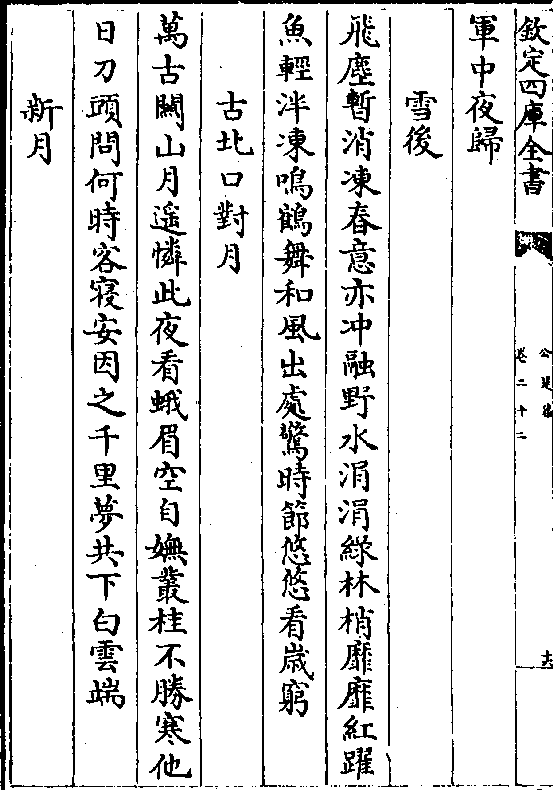 欽定四庫全書
公是集
卷二十二
軍中夜歸
雪後
飛塵暫消凍春意亦冲融野水涓涓綠林梢靡靡紅躍
魚輕泮凍鳴鶴舞和風出處驚時節悠悠看嵗窮
古北口對月
萬古關山月遥憐此夜看蛾眉空自嫵叢桂不勝寒他
日刀頭問何時客寝安因之千里夢共下白雲端
新月